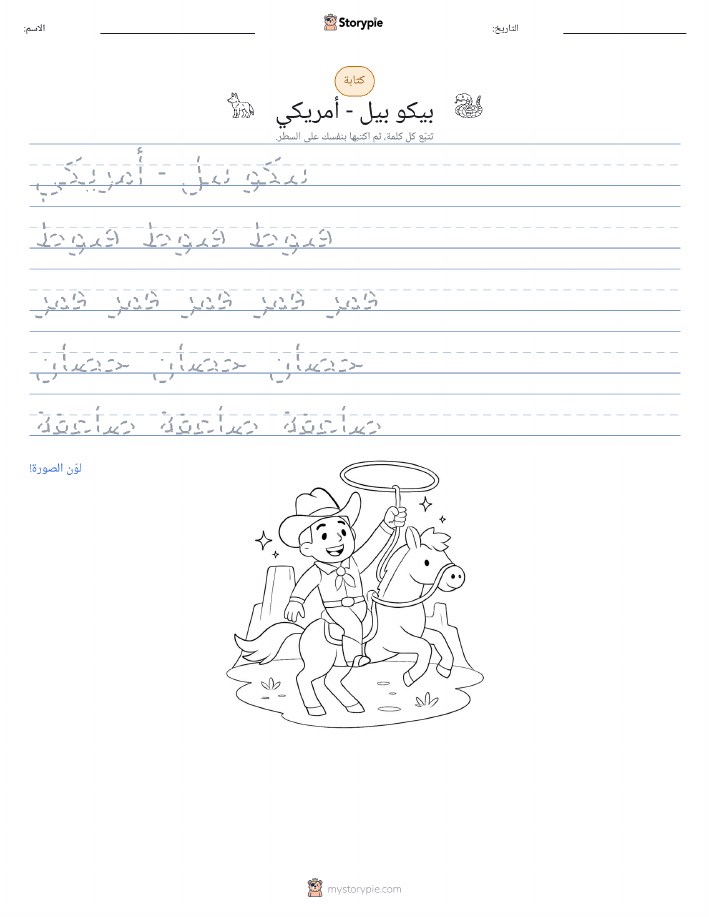 Storypie
الاسم:
التاريخ:
كتابة
بيكو بيل - أمريكي
تتبّع كل كلمة، ثم اكتبها بنفسك على السطر.
بيكو بيل - أمريكي
قيوط قيوط قيوط
قمر قمر قمر قمر قمر
حصان حصان حصان
صاعقة صاعقة صاعقة
لوّن الصورة!
mystorypie.com